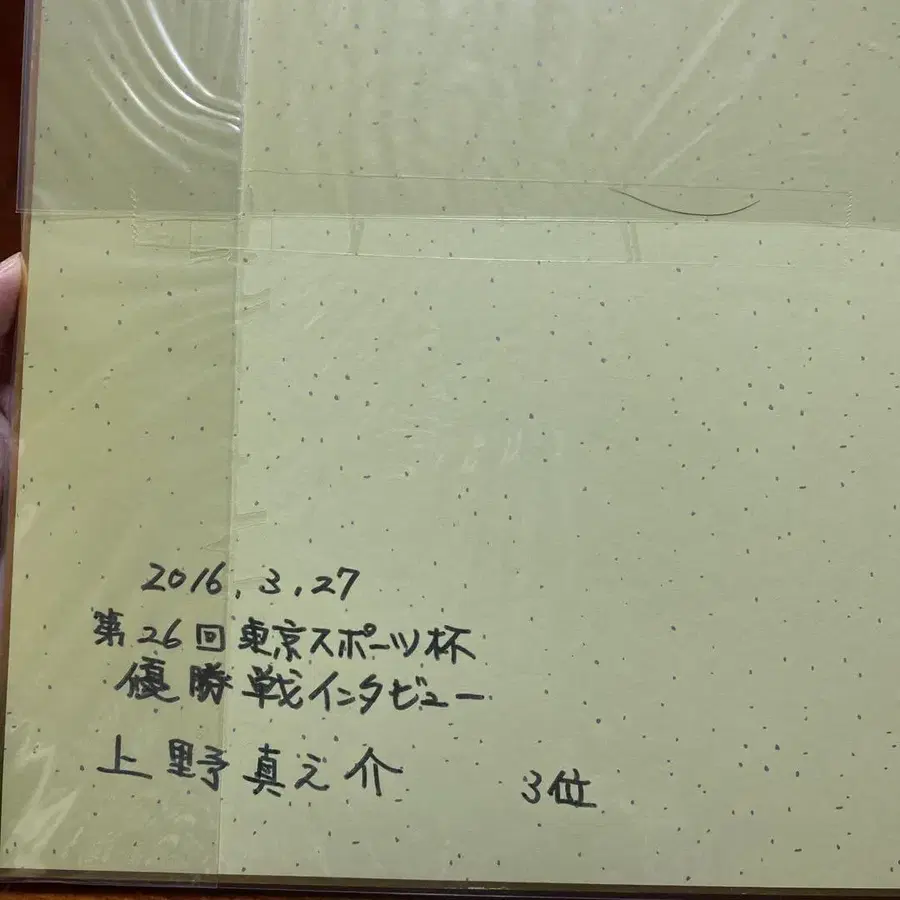 2016.3.27
第26回東京スポーツ杯
優勝戦インタビュー
上野真之介 3位